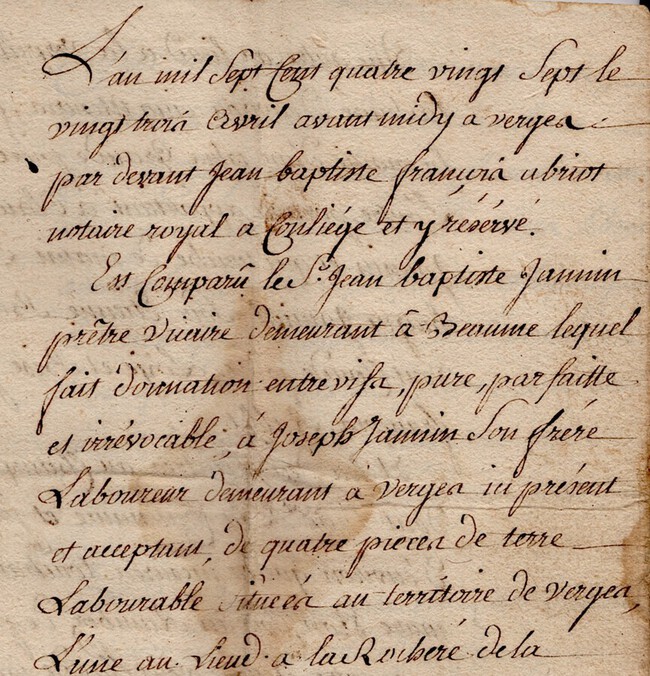 L'an mil Sept Cent quatre vingt Sept le
vingt trois Avril avant midy a verges
par devant Jean baptiste françois ubriot
notaire royal a Couliége et y résérvé.
Est Comparû le Sr. Jean baptiste Jannin
prêtre vicaire demeurant â Beaume lequel
fait donnation entre vifs, pure, parfaitte
et irrévocable, à Joseph Jannin Son fréré
Laboureur demeurant à verges ici présent
et acceptant, de quatre pieces de terre
Labourable situées au territoire de verges,
L'une au Lieud. a la Rochéré de la